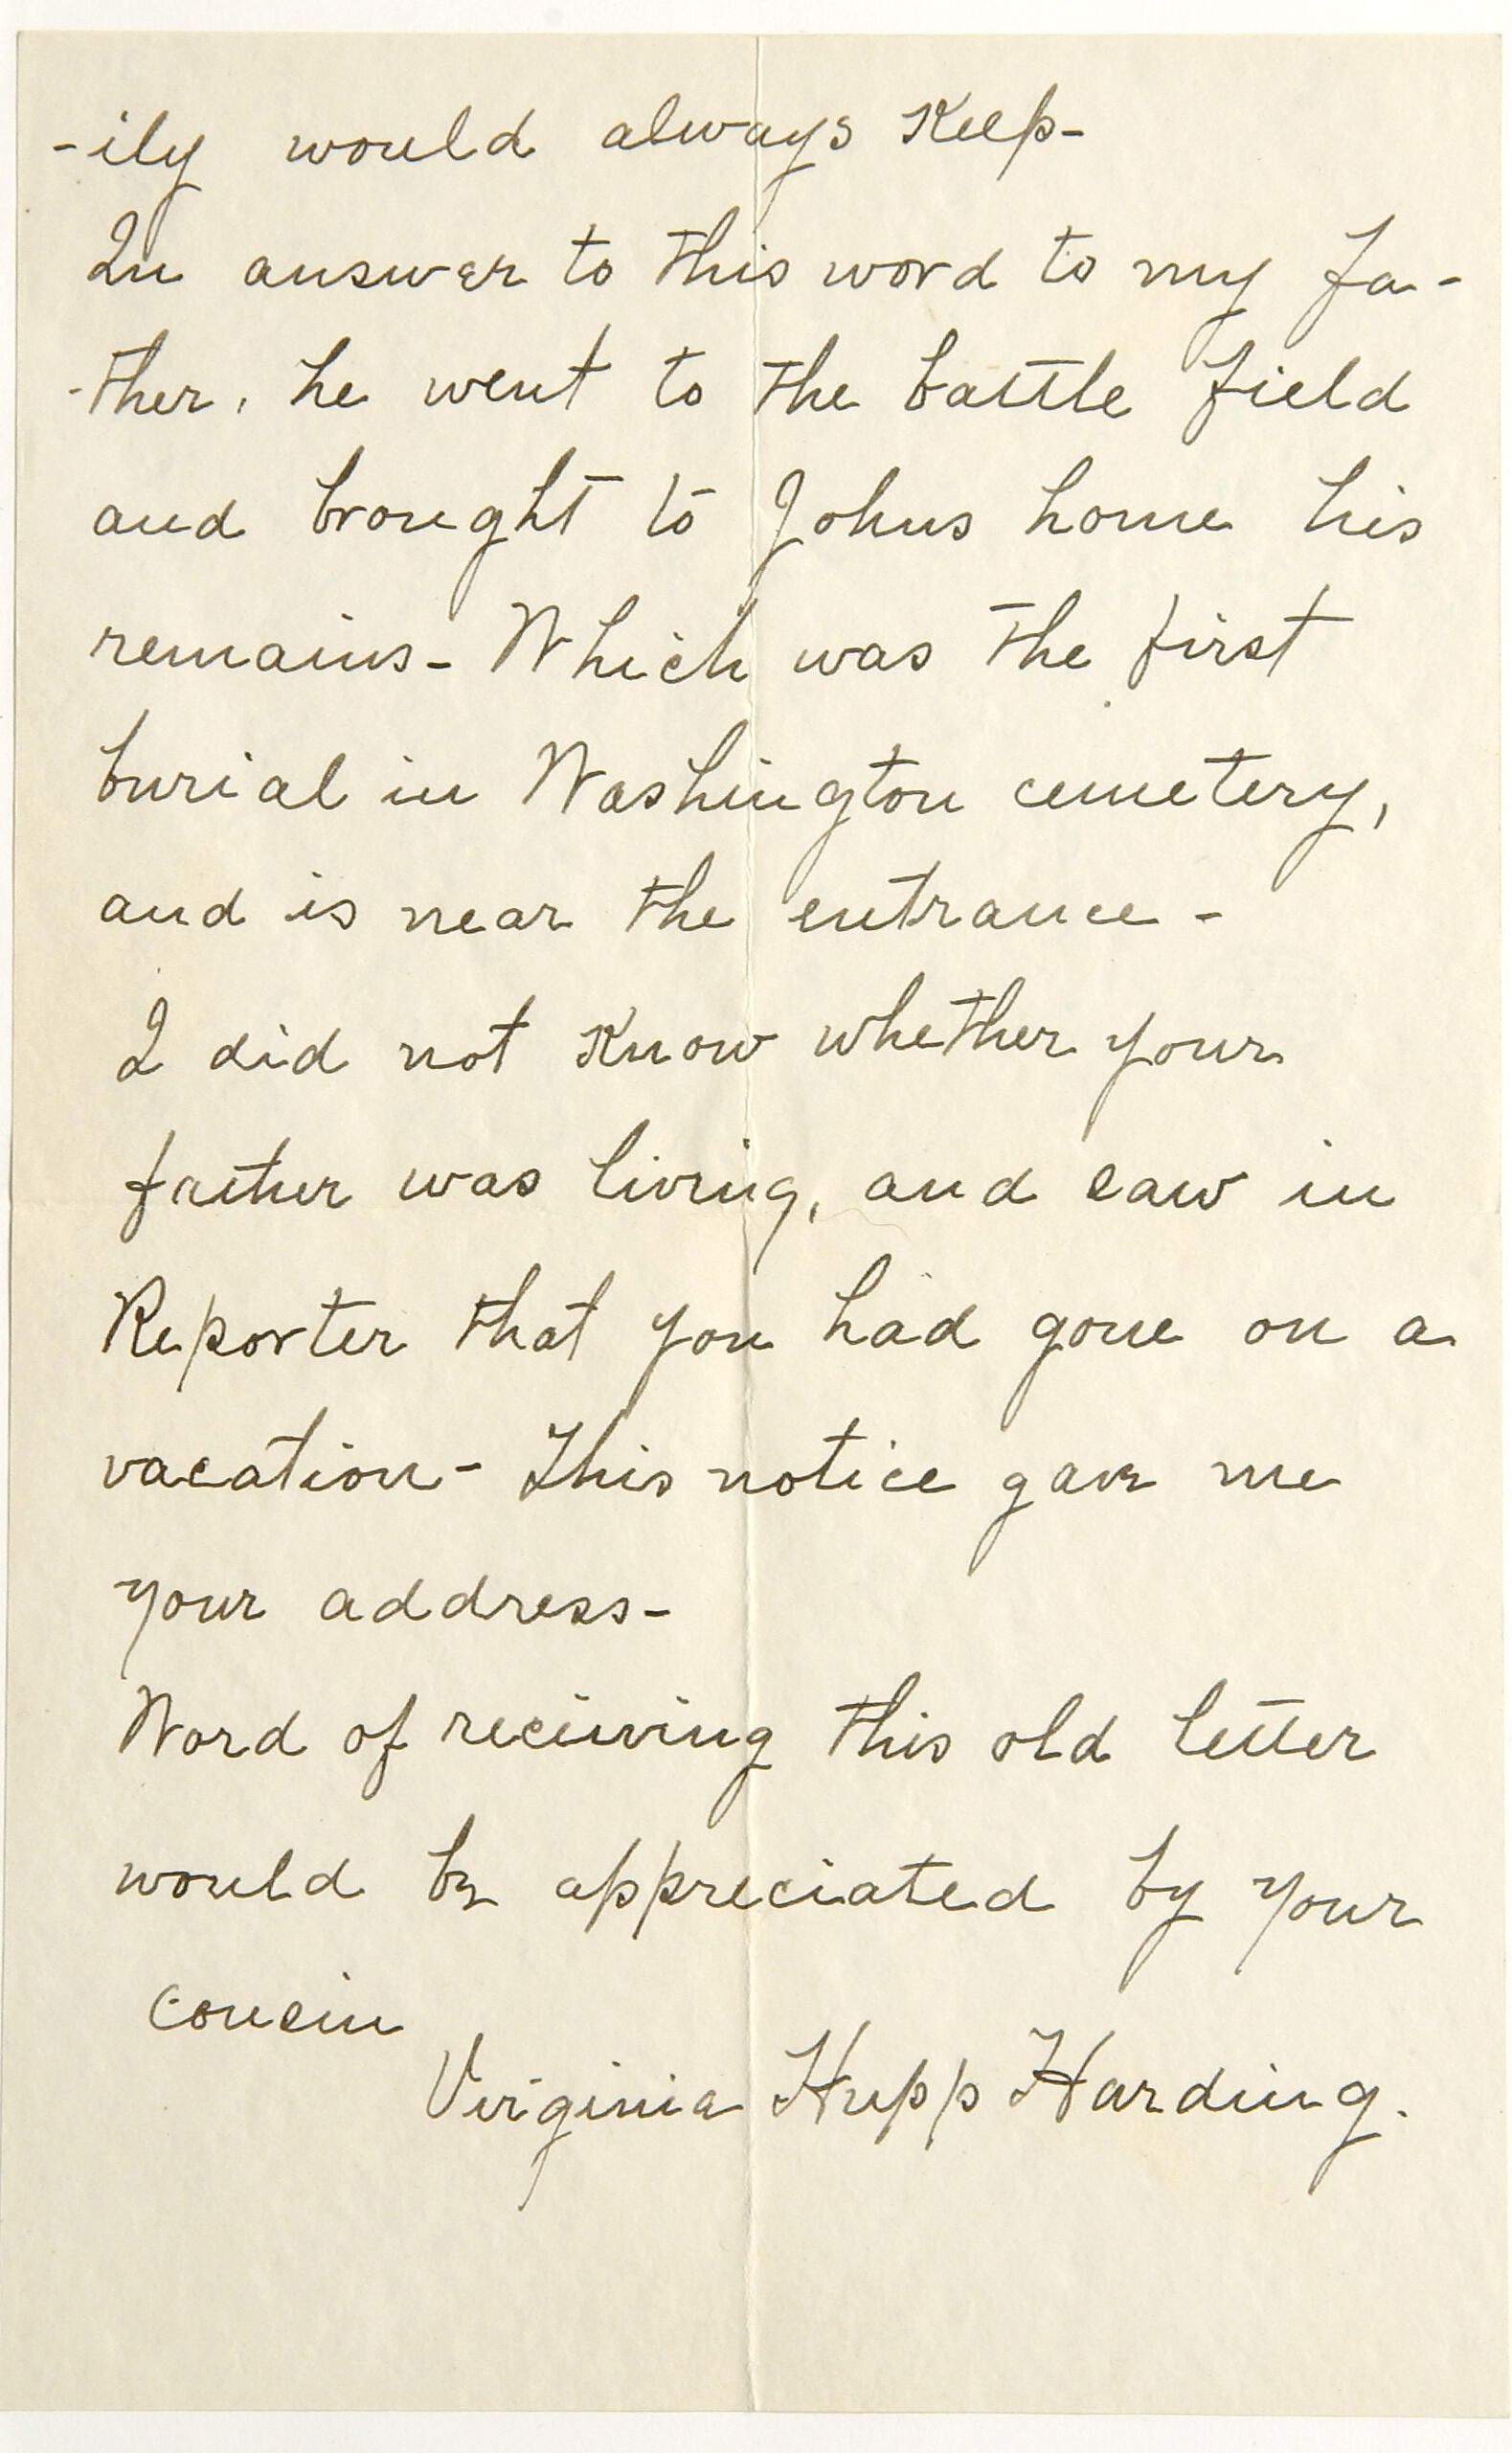 -ily would always Keep-
In answer to this word to my fa-
-ther, he went to the battle field
and brought to Johns home his
remains- Which was the first
burial in Washington cemetery,
and is near the entrance-
I did not Know whether your
father was living, and saw in
Reporter that you had gone on a
vacation- This notice gave me
your address-
Word of receiving this old letter
would be appreciated by your
cousin
Virginia Hupp Harding.